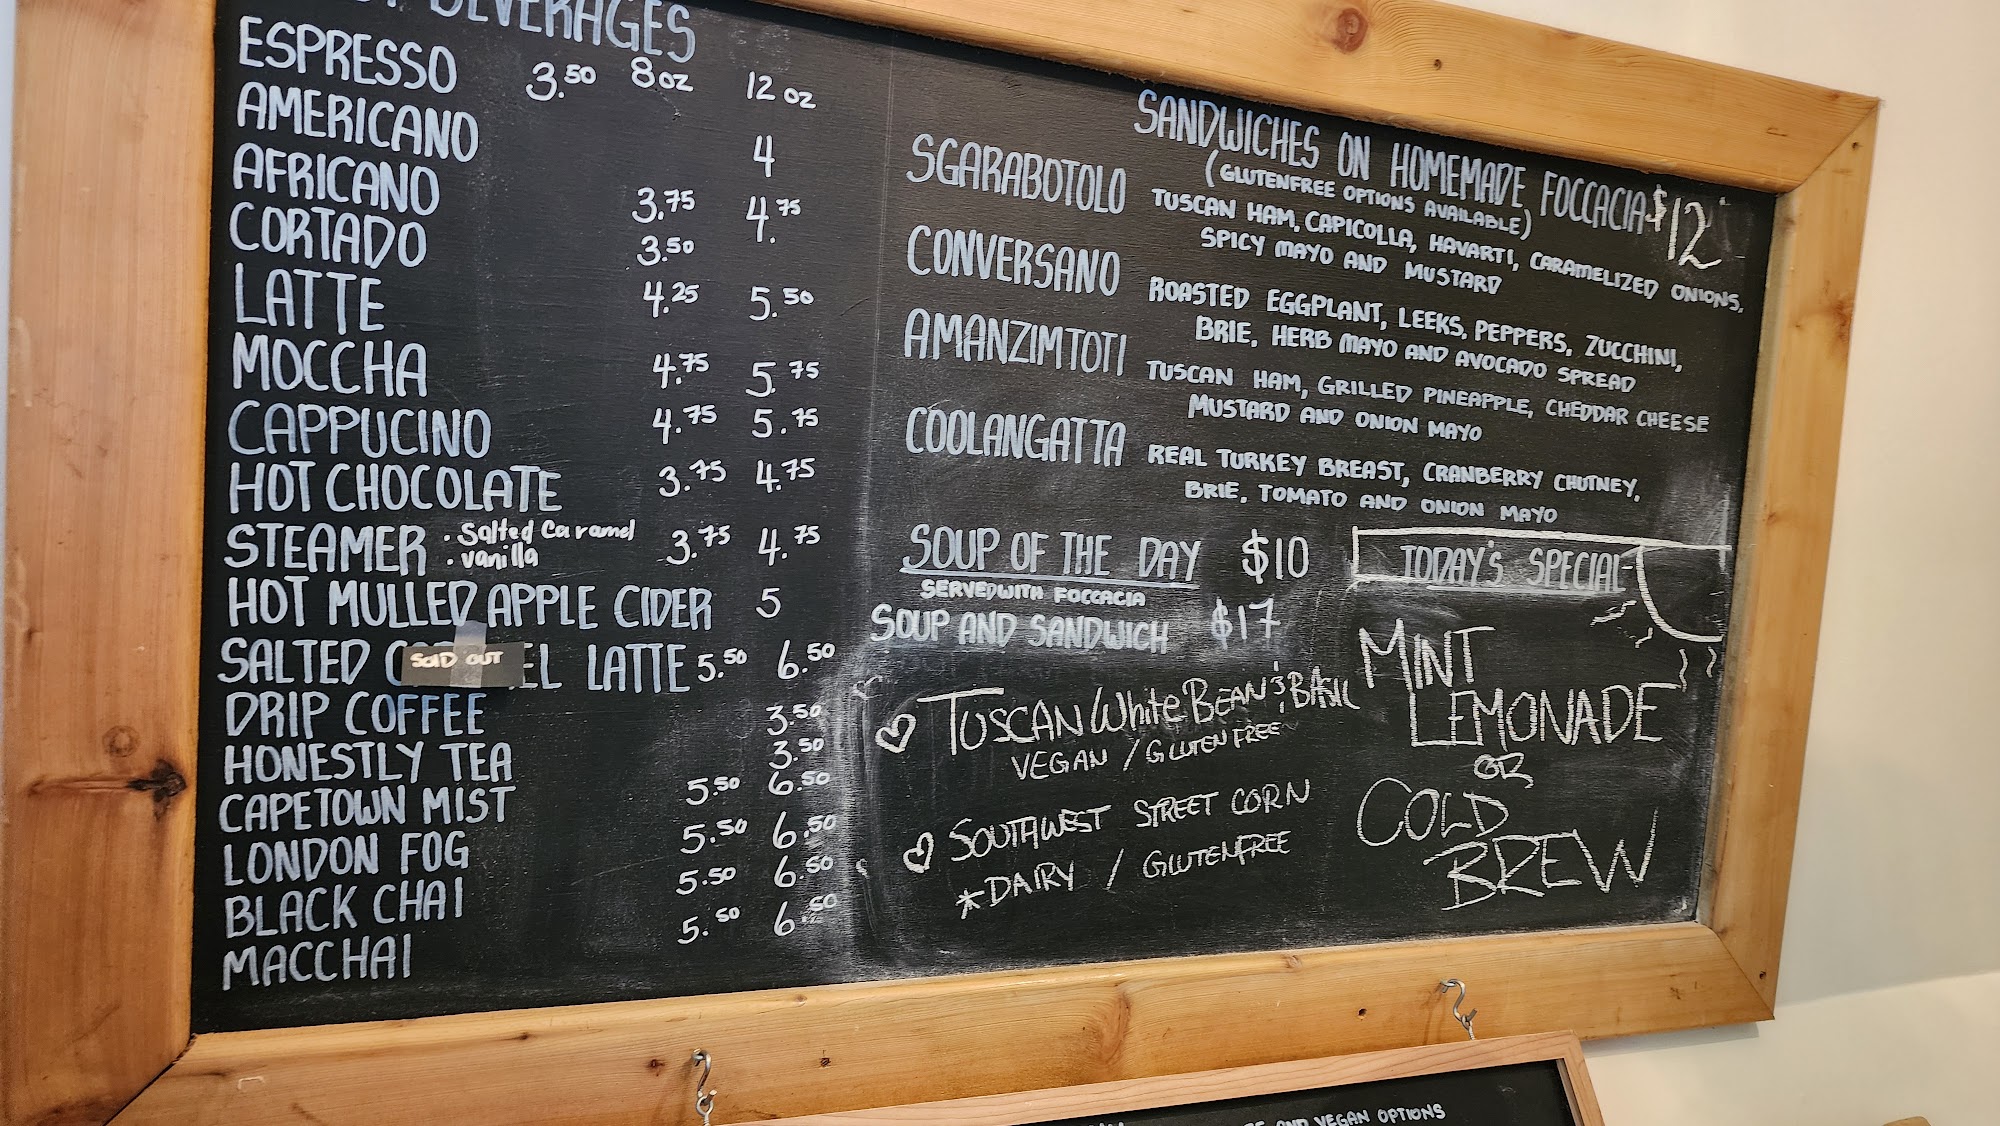 BEVERAGES
ESPRESSO 3.50 8oz 12 oz
AMERICANO 4
AFRICANO 3.75 4.75
CORTADO 3.50
LATTE 4.25 5.50
MOCCHA 4.75 5.75
CAPPUCINO 4.75 5.75
HOT CHOCOLATE 3.75 4.75
STEAMER · Salted Caramel 3.75 4.75
· vanilla
HOT MULLED APPLE CIDER 5
SALTED C SOLD OUT EL LATTE 5.50 6.50
DRIP COFFEE 3.50
HONESTLY TEA 3.50
CAPETOWN MIST 5.50 6.50
LONDON FOG 5.50 6.50
BLACK CHAI 5.50 6.50
MACCHAI 5.50 6.50
SANDWICHES ON HOMEMADE FOCCACIA $12
(GLUTENFREE OPTIONS AVAILABLE)
SGARABOTOLO TUSCAN HAM, CAPICOLLA, HAVARTI, CARAMELIZED ONIONS,
SPICY MAYO AND MUSTARD
CONVERSANO ROASTED EGGPLANT, LEEKS, PEPPERS, ZUCCHINI,
BRIE, HERB MAYO AND AVOCADO SPREAD
AMANZIMTOTI TUSCAN HAM, GRILLED PINEAPPLE, CHEDDAR CHEESE
MUSTARD AND ONION MAYO
COOLANGATTA REAL TURKEY BREAST, CRANBERRY CHUTNEY,
BRIE, TOMATO AND ONION MAYO
SOUP OF THE DAY $10
SERVED WITH FOCCACIA
SOUP AND SANDWICH $17
TUSCAN WHITE BEAN & BASIL
VEGAN / GLUTEN FREE
SOUTHWEST STREET CORN
*DAIRY / GLUTENFREE
TODAY'S SPECIAL
MINT
LEMONADE
OR
COLD
BREW
AND VEGAN OPTIONS